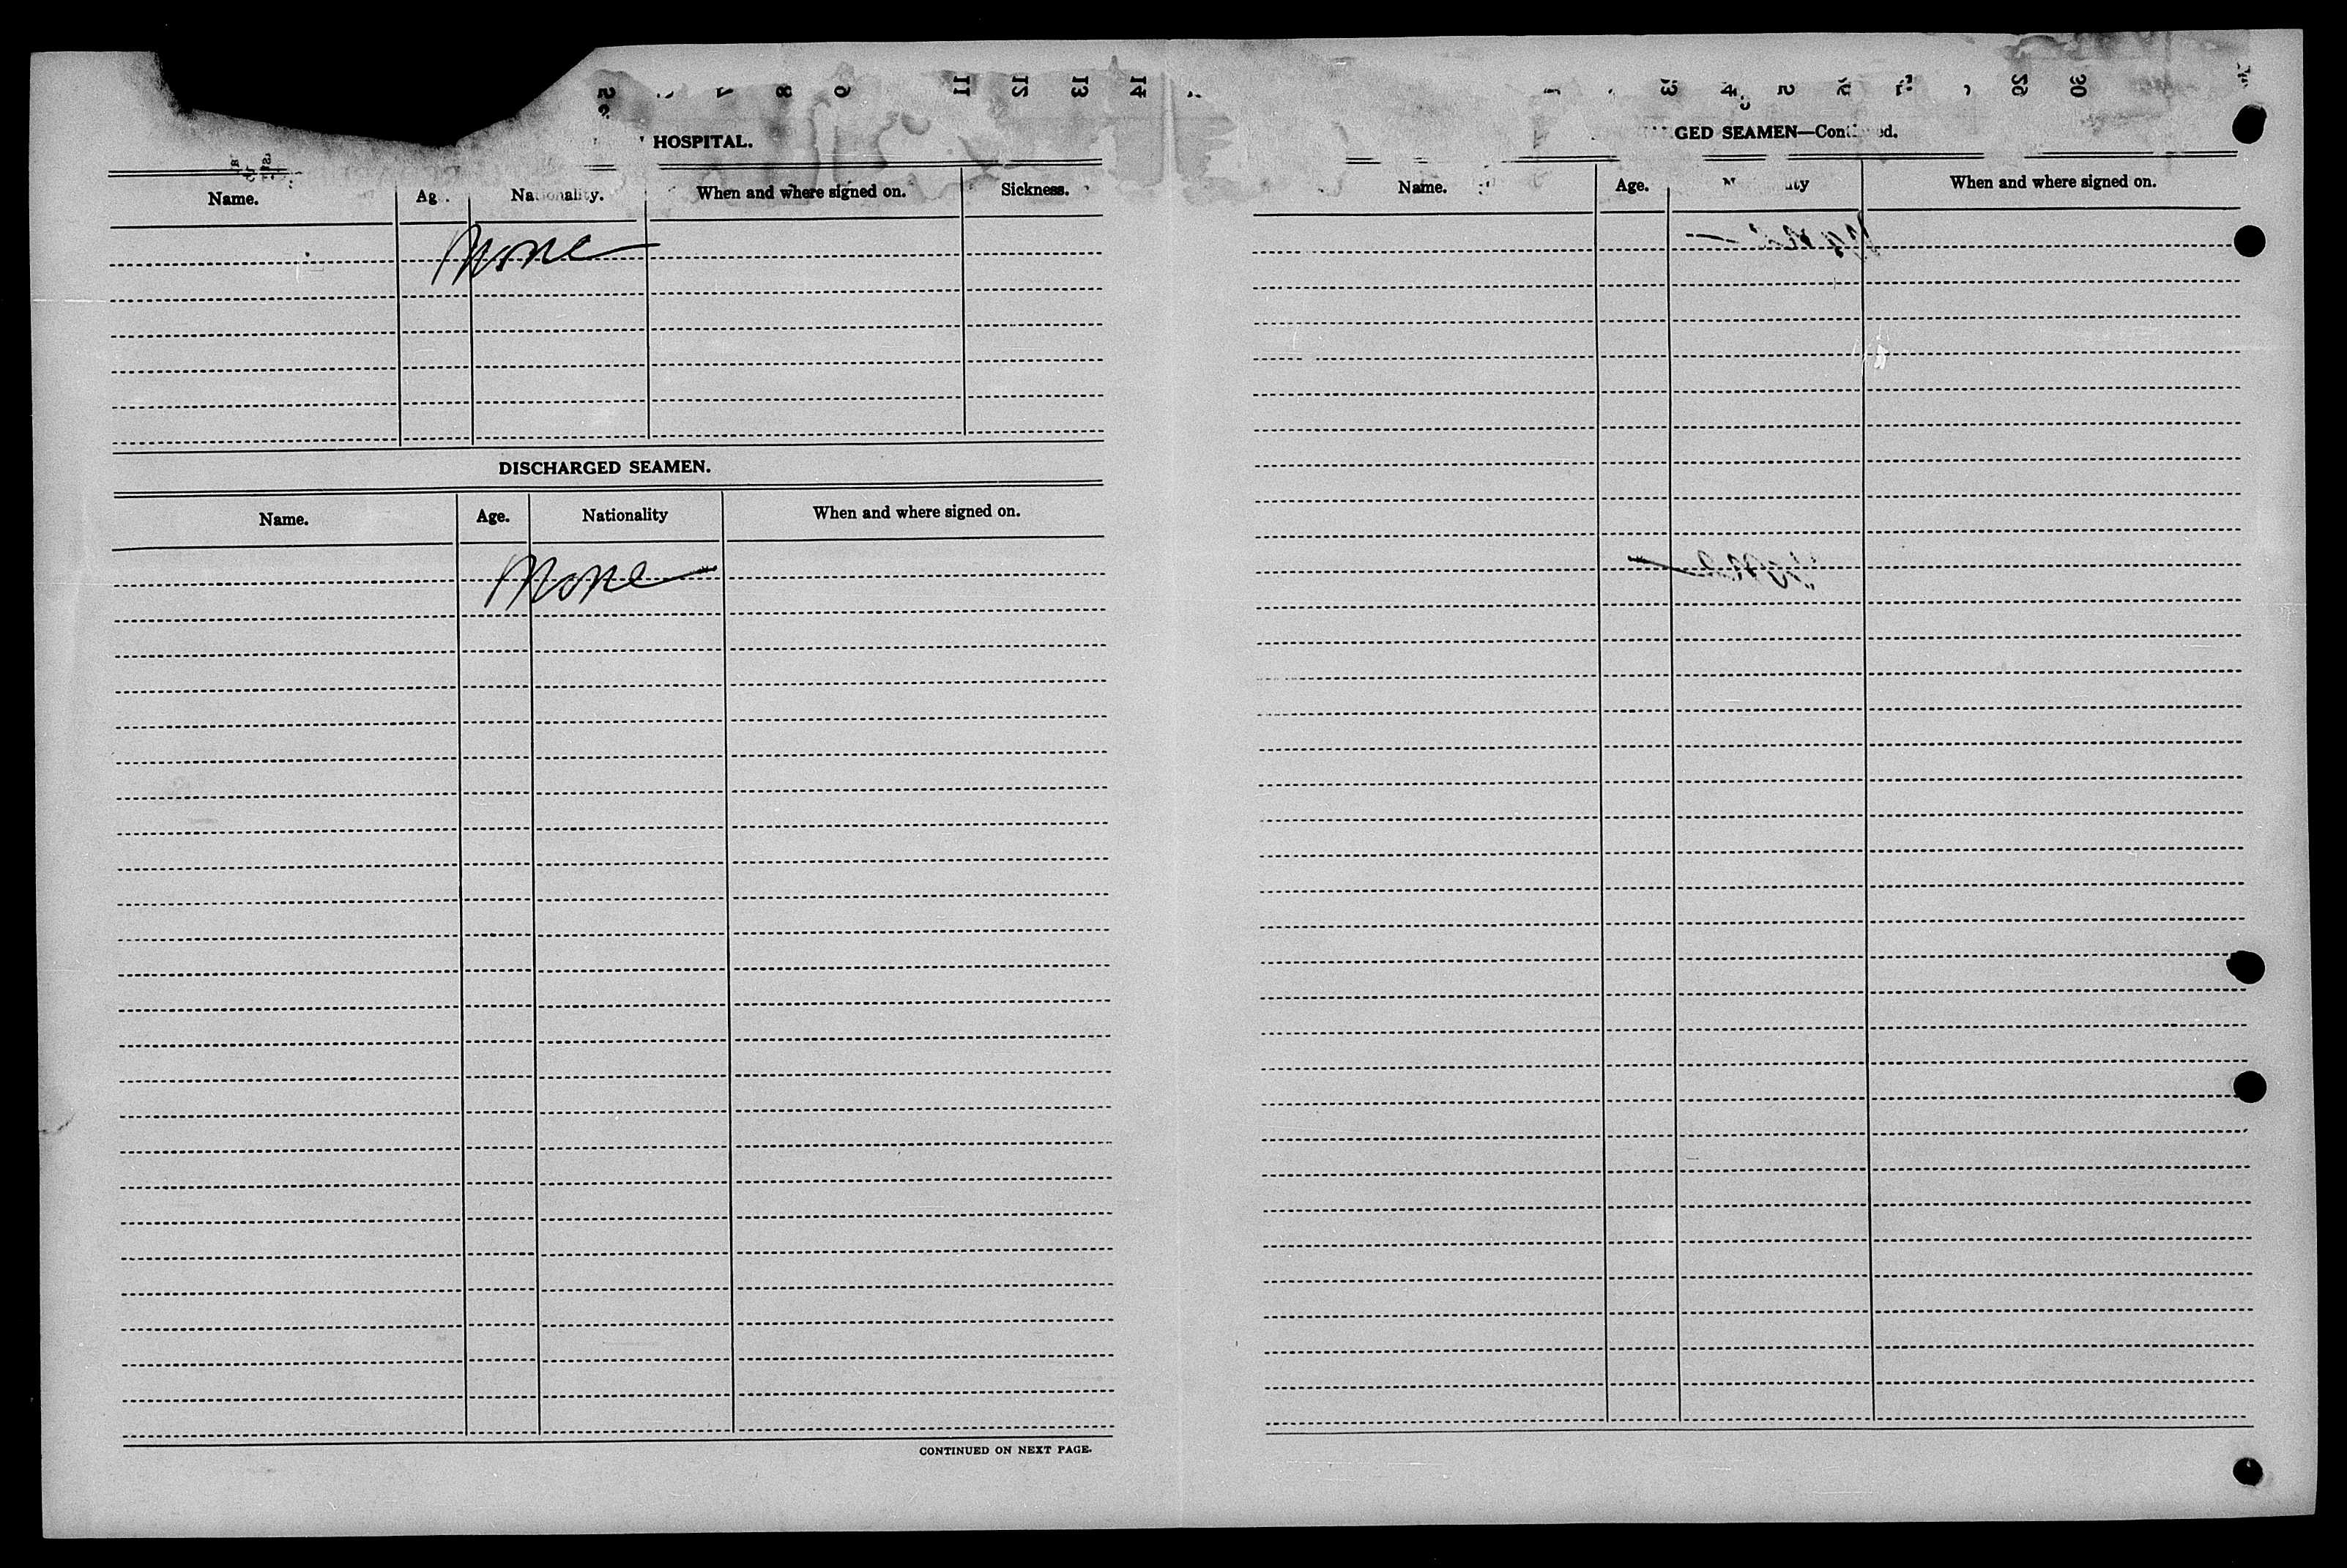 HOSPITAL.
Name. Nationality. When and where signed on. Sickness.
None
DISCHARGED SEAMEN.
Name. Age. Nationality When and where signed on.
None
CONTINUED ON NEXT PAGE.
GED SEAMEN—Continued.
Name. Age. When and where signed on.